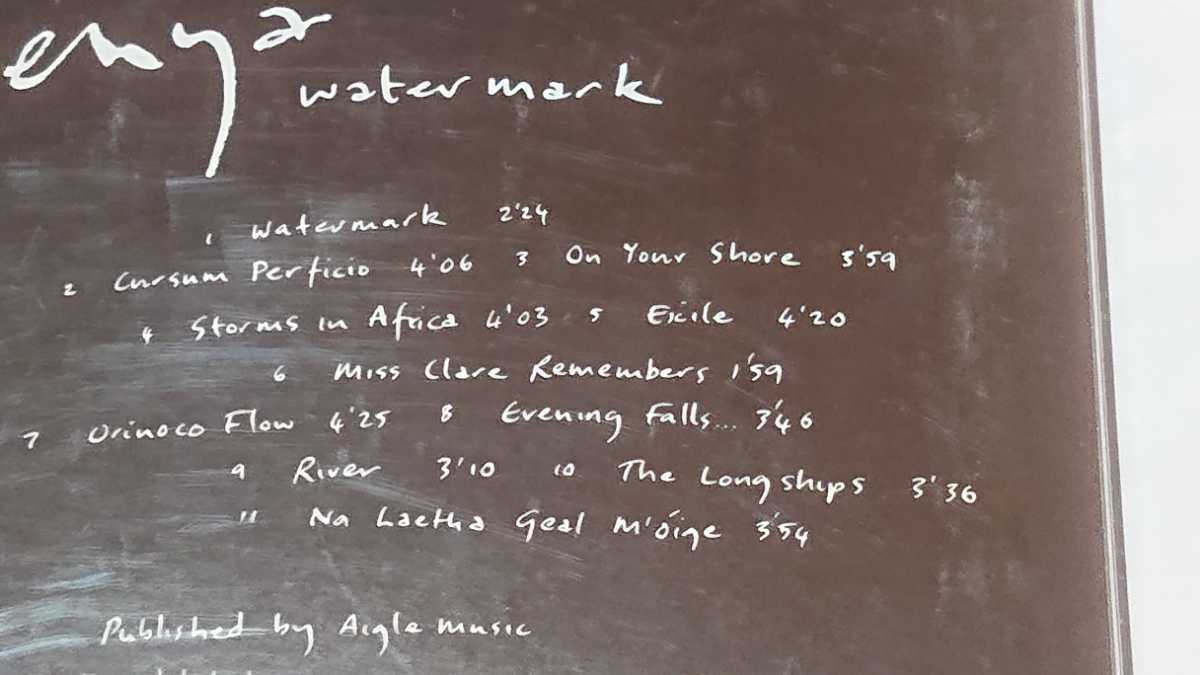 enya
watermark
1 Watermark 2'24
2 Cursum Perficio 4'06 3 On Your Shore 3'59
4 Storms in Africa 4'03 5 Exile 4'20
6 Miss Clare Remembers 1'59
7 Orinoco Flow 4'25 8 Evening Falls... 3'46
9 River 3'10 10 The Longships 3'36
11 Na Laetha Geal M'óige 3'54
Published by Aigle music